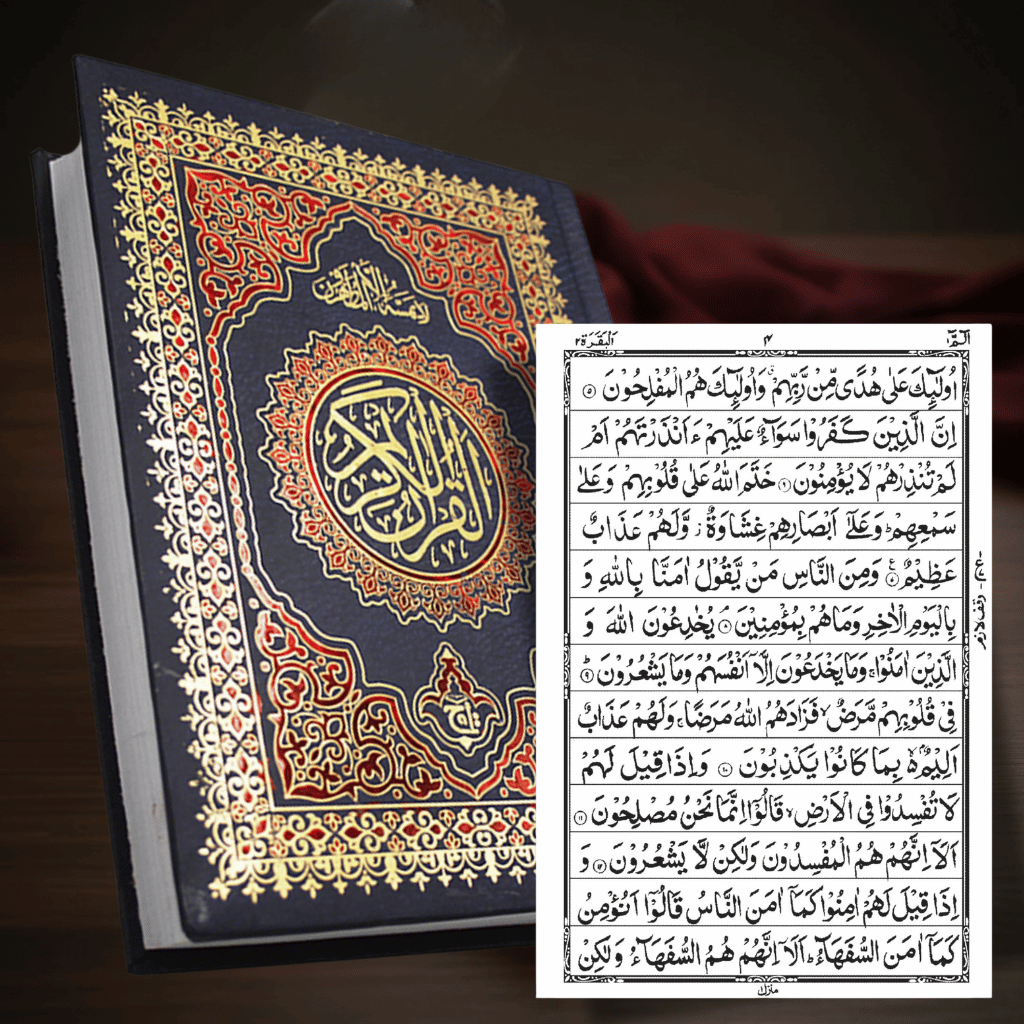 لا يمسه إلا المطهرون
القرآن الكريم
تاج
الٓمّٓ ١
٤
اَلْبَقَرَة ٢
اُولٰٓئِكَ عَلٰى هُدًى مِّنْ رَّبِّهِمْ ۙ وَاُولٰٓئِكَ هُمُ الْمُفْلِحُوْنَ ۝٥
اِنَّ الَّذِيْنَ كَفَرُوْا سَوَآءٌ عَلَيْهِمْ ءَاَنْذَرْتَهُمْ اَمْ
لَمْ تُنْذِرْهُمْ لَا يُؤْمِنُوْنَ ۝٦ خَتَمَ اللّٰهُ عَلٰى قُلُوْبِهِمْ وَعَلٰى
سَمْعِهِمْ ؕ وَعَلٰٓى اَبْصَارِهِمْ غِشَاوَةٌ ۫ وَّلَهُمْ عَذَابٌ
عَظِيْمٌ ۝٧ وَمِنَ النَّاسِ مَنْ يَّقُوْلُ اٰمَنَّا بِاللّٰهِ وَ
بِالْيَوْمِ الْاٰخِرِ وَمَا هُمْ بِمُؤْمِنِيْنَ ۝٨ يُخٰدِعُوْنَ اللّٰهَ وَ
الَّذِيْنَ اٰمَنُوْا ۚ وَمَا يَخْدَعُوْنَ اِلَّاۤ اَنْفُسَهُمْ وَمَا يَشْعُرُوْنَ ۝٩
فِيْ قُلُوْبِهِمْ مَّرَضٌ ۙ فَزَادَهُمُ اللّٰهُ مَرَضًا ۚ وَلَهُمْ عَذَابٌ
اَلِيْمٌۢ ۙ۬ بِمَا كَانُوْا يَكْذِبُوْنَ ۝١٠ وَاِذَا قِيْلَ لَهُمْ
لَا تُفْسِدُوْا فِي الْاَرْضِ ۙ قَالُوْۤا اِنَّمَا نَحْنُ مُصْلِحُوْنَ ۝١١
اَلَاۤ اِنَّهُمْ هُمُ الْمُفْسِدُوْنَ وَلٰكِنْ لَّا يَشْعُرُوْنَ ۝١٢ وَ
اِذَا قِيْلَ لَهُمْ اٰمِنُوْا كَمَاۤ اٰمَنَ النَّاسُ قَالُوْۤا اَنُؤْمِنُ
كَمَاۤ اٰمَنَ السُّفَهَآءُ ؕ اَلَاۤ اِنَّهُمْ هُمُ السُّفَهَآءُ وَلٰكِنْ
وقف لازم